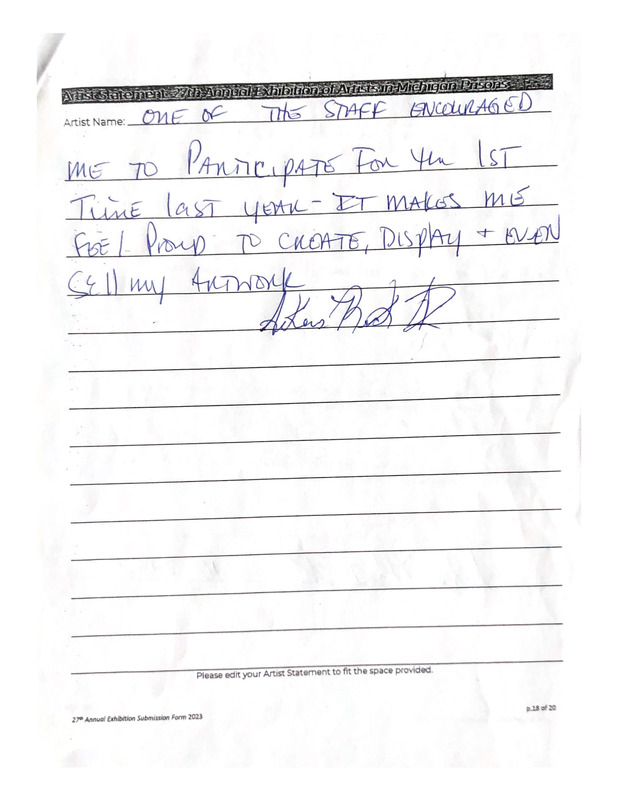 Artist Statement: 27th Annual Exhibition of Artists in Michigan Prisons
Artist Name: ONE OF THE STAFF ENCOURAGED
ME TO PARTICIPATE FOR the 1ST
Time last YEAR - IT MAKES ME
FEEl Proud TO CREATE, DISPlAy + EVEN
SEll my ARTWORK
Please edit your Artist Statement to fit the space provided.
27th Annual Exhibition Submission Form 2023
p.18 of 20